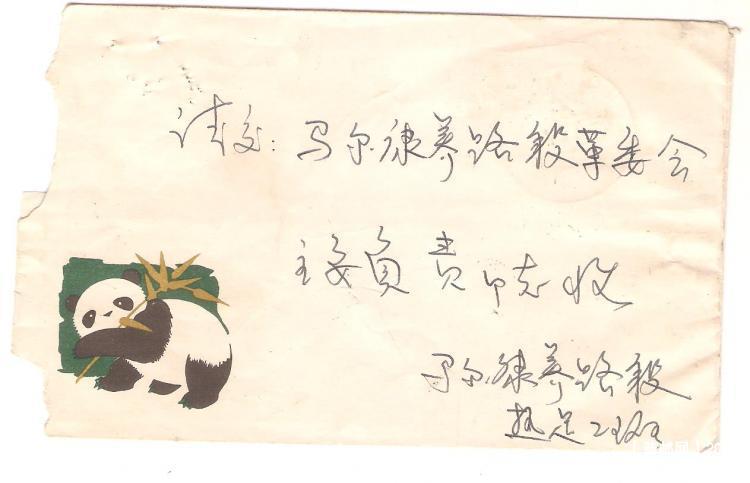 请交：马尔康养路段革委会
主要负责同志收
马尔康养路段
热足工班